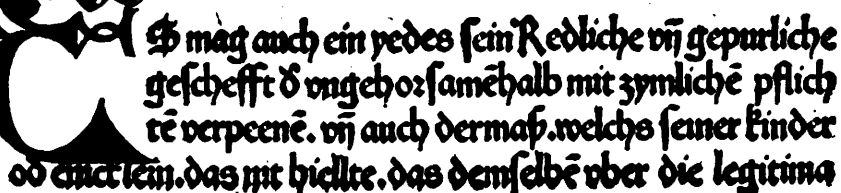 ES mag auch ein yedes sein Redliche vn̄ gepurliche
geschefft ð vngehorsamēhalb mit zymlichē pflich
tē verpeenē. vn̄ auch dermaß. welchs seiner kinder
od enicklein. das nit hiellte. das demselbē vber die legitima